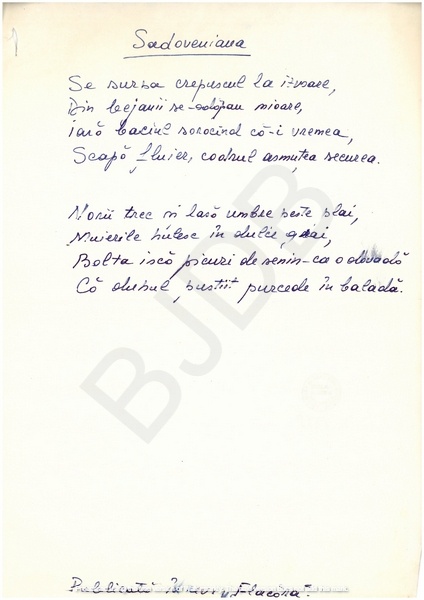 Sadoveniana
Se surpa crepuscul la izvoare,
Din bejanii se-adăpau mioare,
Iară baciul sorocind că-i vremea,
Scapă fluier, codrul asmuțea securea.
Norii trec și lasă umbre peste plai,
în dulce grai,
Bolta iscă picuri de senin-ca o dovadă
Că duhul pustiit purcede în baladă.
Publicată în rev. "Flacăra"
BJDB